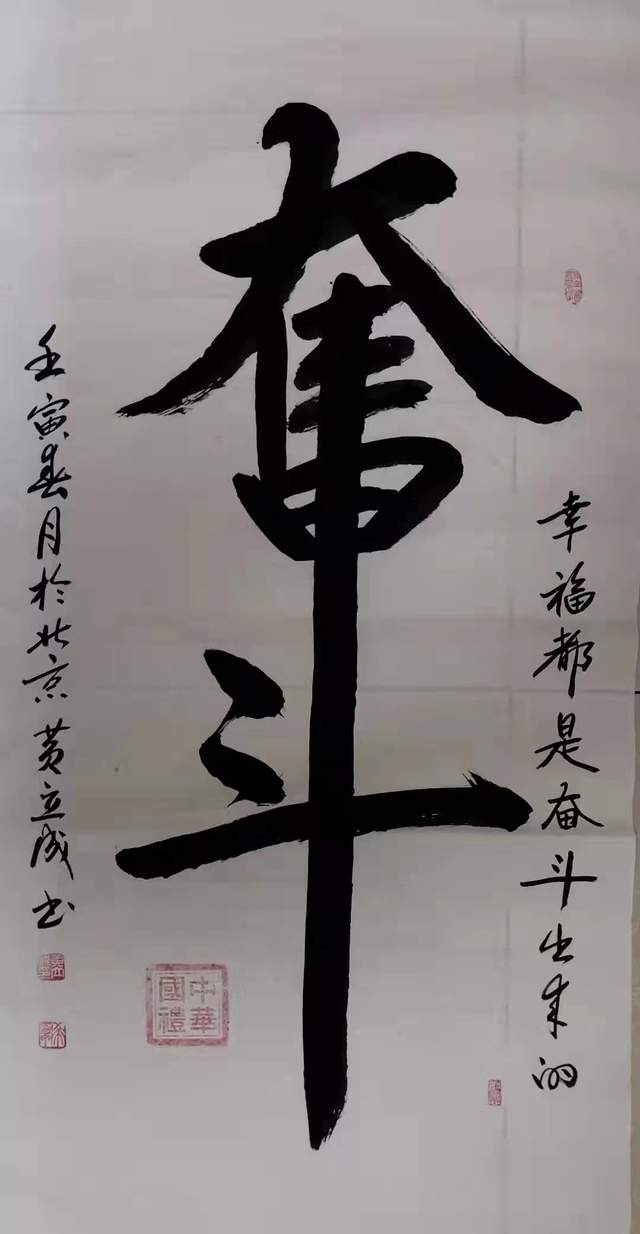 幸福都是奋斗出来的
奮斗
壬寅春月於北京黄立成书
中華國禮